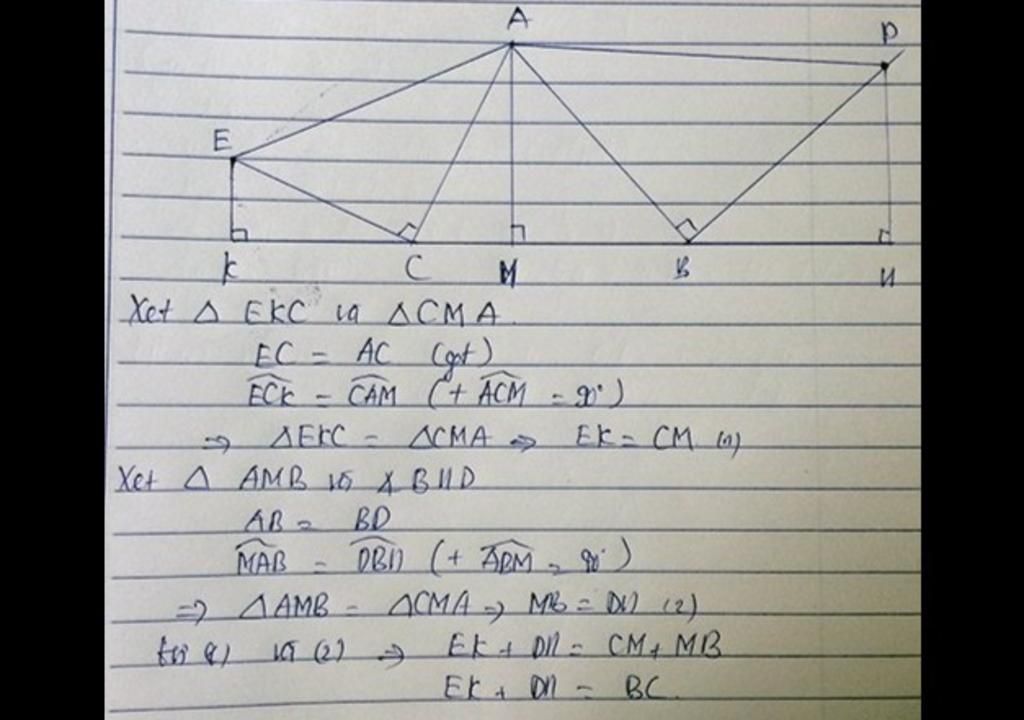 A
D
E
K C M B H
Xet △ EKC và △CMA.
EC = AC (gt)
ECK = CAM (+ ACM = 90°)
⇒ △EKC = △CMA ⇒ EK = CM (1)
Xet △ AMB và △ BHD
AB = BD
MAB = DBH (+ ABM = 90°)
⇒ △AMB = △CMA ⇒ MB = DH (2)
từ (1) và (2) ⇒ EK + DH = CM + MB
EK + DH = BC.